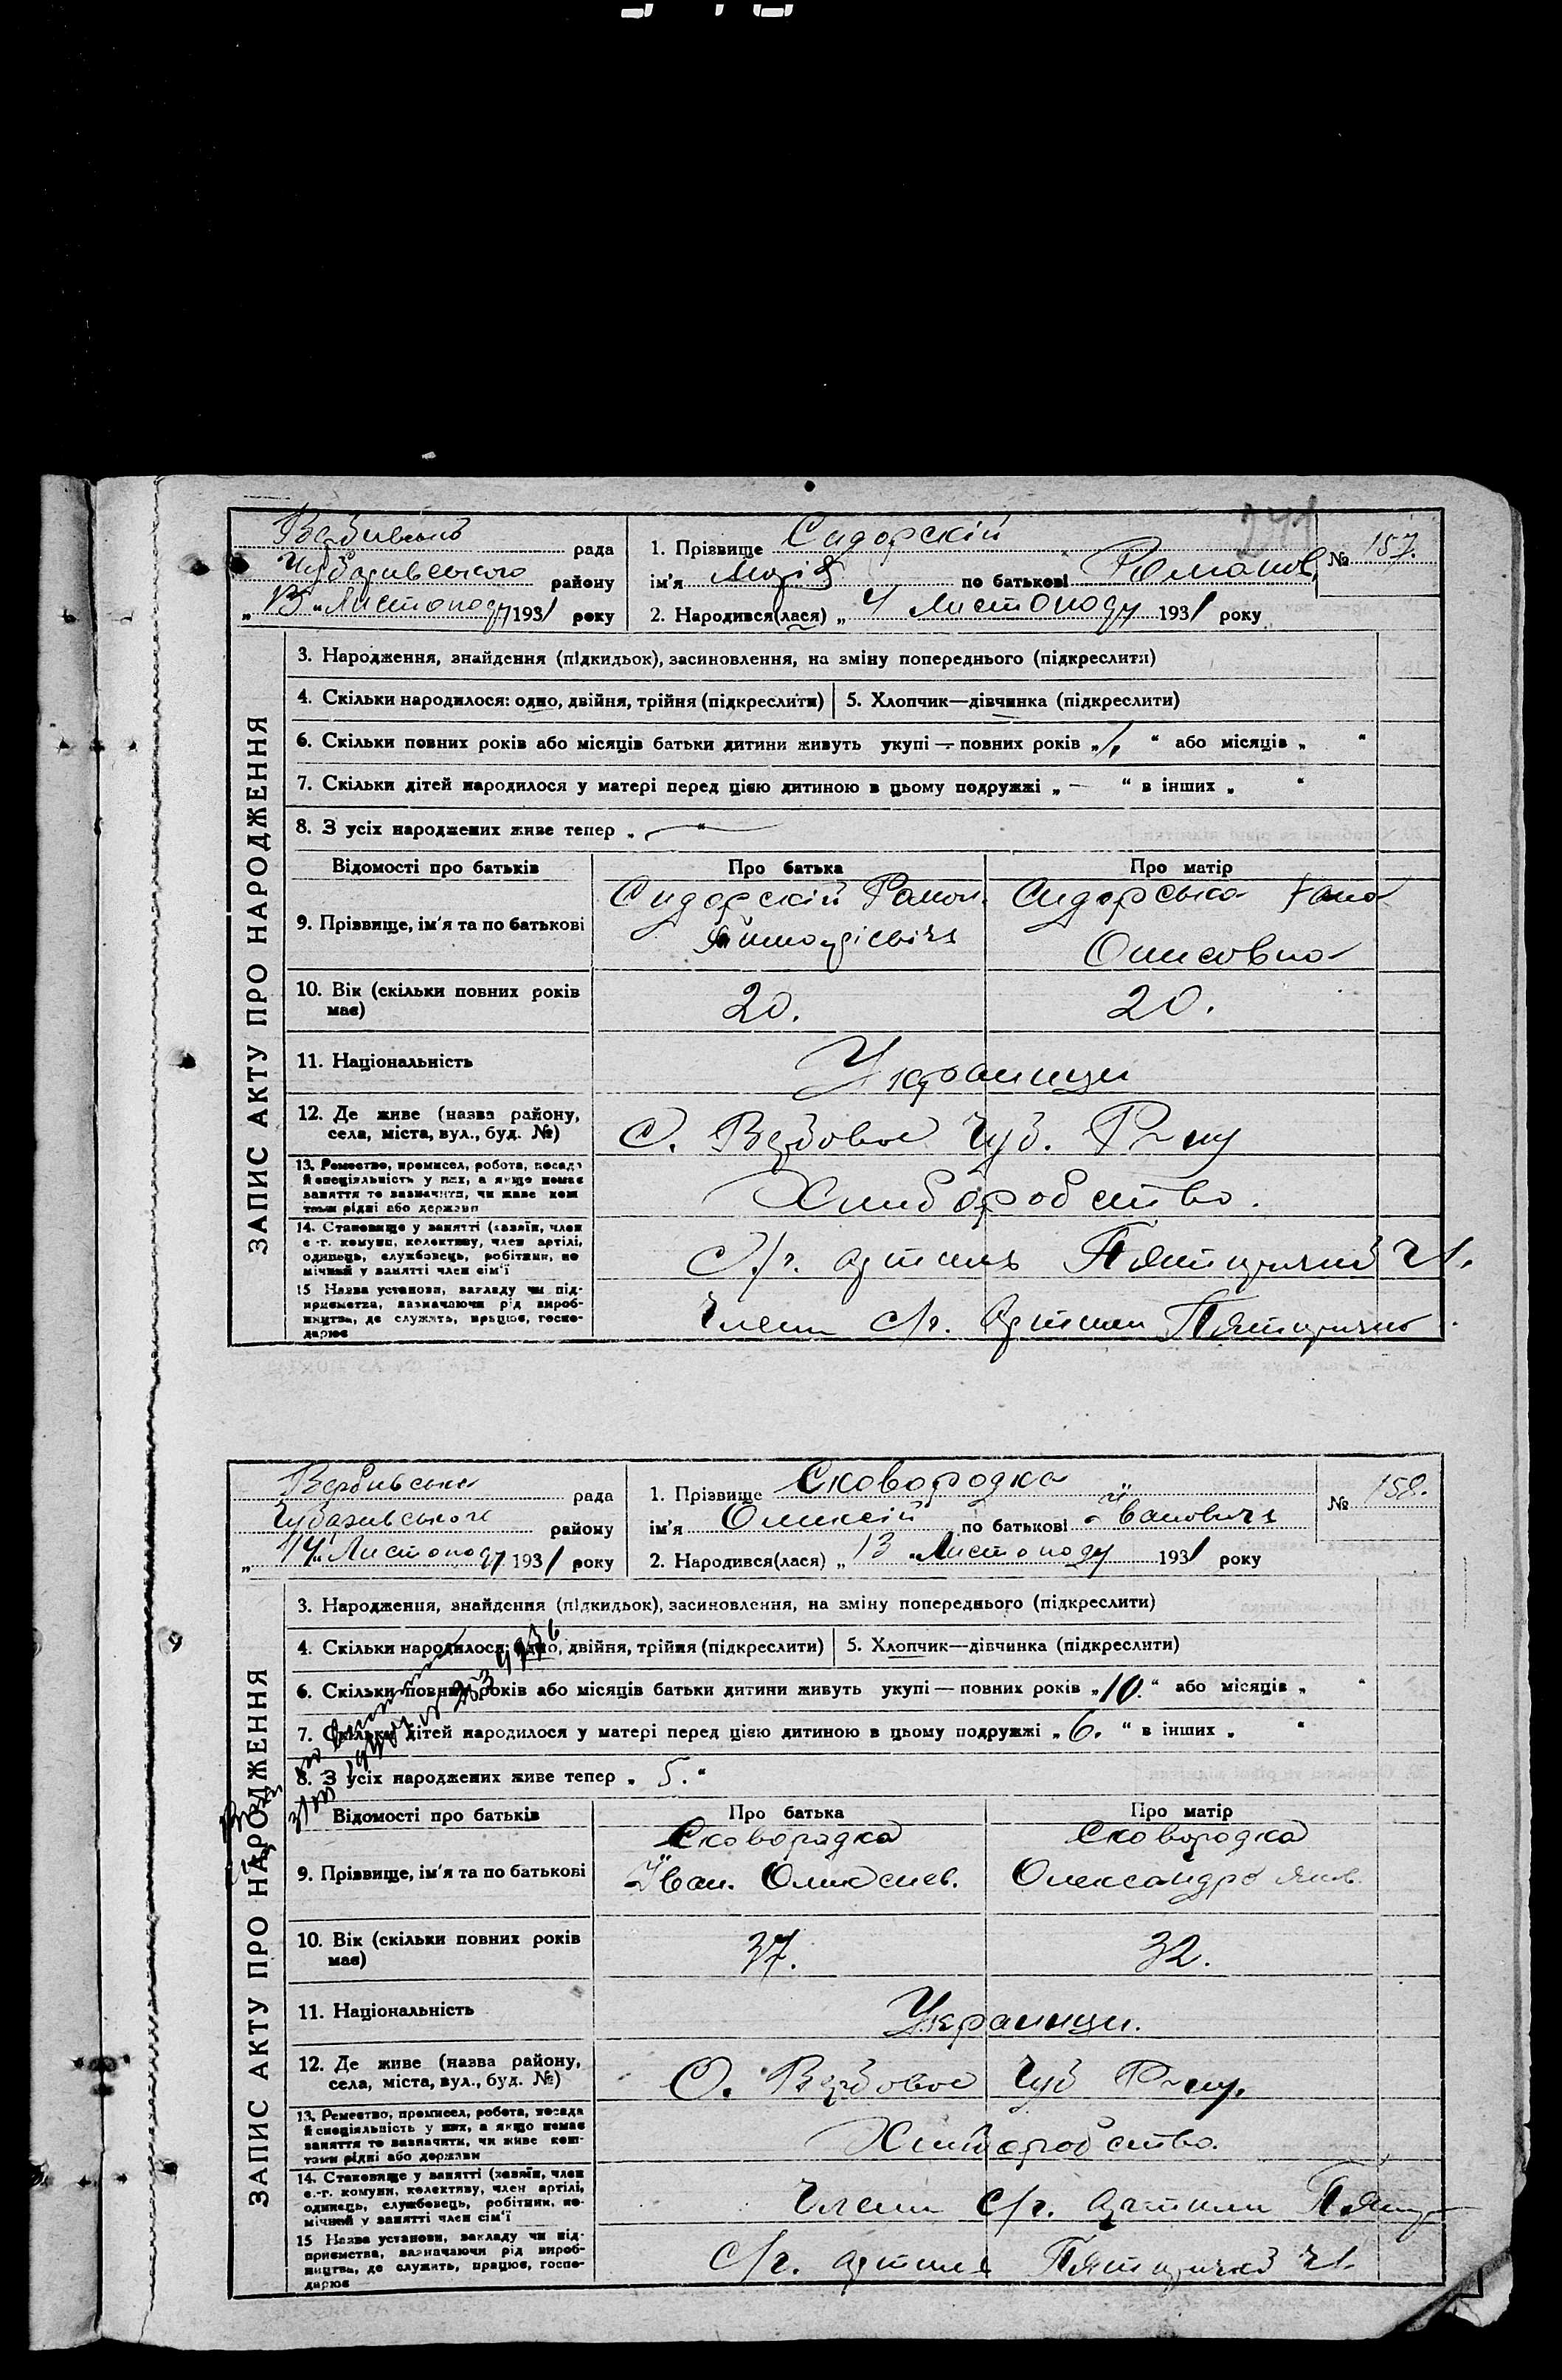 241
Вербивська рада
Чубаривського району
„13“ Листопаду 1931 року
1. Прізвище Сидорскій
ім'я Марія по батькові Романов.
2. Народився(лася) „4 Листопаду 1931 року
№ 157.
ЗАПИС АКТУ ПРО НАРОДЖЕННЯ
3. Народження, знайдення (підкидьок), засиновлення, на зміну попереднього (підкреслити)
4. Скільки народилося: одно, двійня, трійня (підкреслити) 5. Хлопчик—дівчинка (підкреслити)
6. Скільки повних років або місяців батьки дитини живуть укупі — повних років „1.“ або місяців „ “
7. Скільки дітей народилося у матері перед цією дитиною в цьому подружжі „ — “ в інших „ “
8. З усіх народжених живе тепер „ — “
Відомості про батьків Про батька Про матір
9. Прізвище, ім'я та по батькові
Сидорскій Роман.
Сидорська
10. Вік (скільки повних років має) 20. 20.
11. Національність Украинци
12. Де живе (назва району, села, міста, вул., буд. №) С. Вербовое Чуб. Р-ну
13. Ремество, промисел, робота, посада й спеціяльність у них, а якщо немає заняття то вазначити, чи живе коштами рідні або держави
Хлиборобство.
14. Становище у занятті (хазяїн, член с.-г. комуни, колективу, член артілі, одинець, службовець, робітник, помічний у занятті член сім'ї
С/г. артиль
15 Назва установи, закладу чи підприємства, вазначаючи рід виробництва, де служить, працює, господарює
Член с/г. Артили
Вербивська рада
Чубаривського району
„14“ Листопаду 1931 року
1. Прізвище Сковородка
ім'я Оликсій по батькові Ївановичь
2. Народився(лася) „13 Листопаду 1931 року
№ 158.
ЗАПИС АКТУ ПРО НАРОДЖЕННЯ
3. Народження, знайдення (підкидьок), засиновлення, на зміну попереднього (підкреслити)
4. Скільки народилося: одно, двійня, трійня (підкреслити) 5. Хлопчик—дівчинка (підкреслити)
6. Скільки повних років або місяців батьки дитини живуть укупі — повних років „10.“ або місяців „ “
7. Скільки дітей народилося у матері перед цією дитиною в цьому подружжі „6.“ в інших „ “
8. З усіх народжених живе тепер „ 5.“
Відомості про батьків Про батька Про матір
9. Прізвище, ім'я та по батькові
Сковородка Сковородка
Їван. Оликсиев. Олександра Яков.
10. Вік (скільки повних років має) 37. 32.
11. Національність Украинци.
12. Де живе (назва району, села, міста, вул., буд. №) С. Вербовое Чуб Р-ну.
13. Ремество, промисел, робота, посада й спеціяльність у них, а якщо немає заняття то вазначити, чи живе коштами рідні або держави
Хлиборобство.
14. Становище у занятті (хазяїн, член с.-г. комуни, колективу, член артілі, одинець, службовець, робітник, помічний у занятті член сім'ї
Член С/г. Артили
15 Назва установи, закладу чи підприємства, вазначаючи рід виробництва, де служить, працює, господарює
С/г. артиль